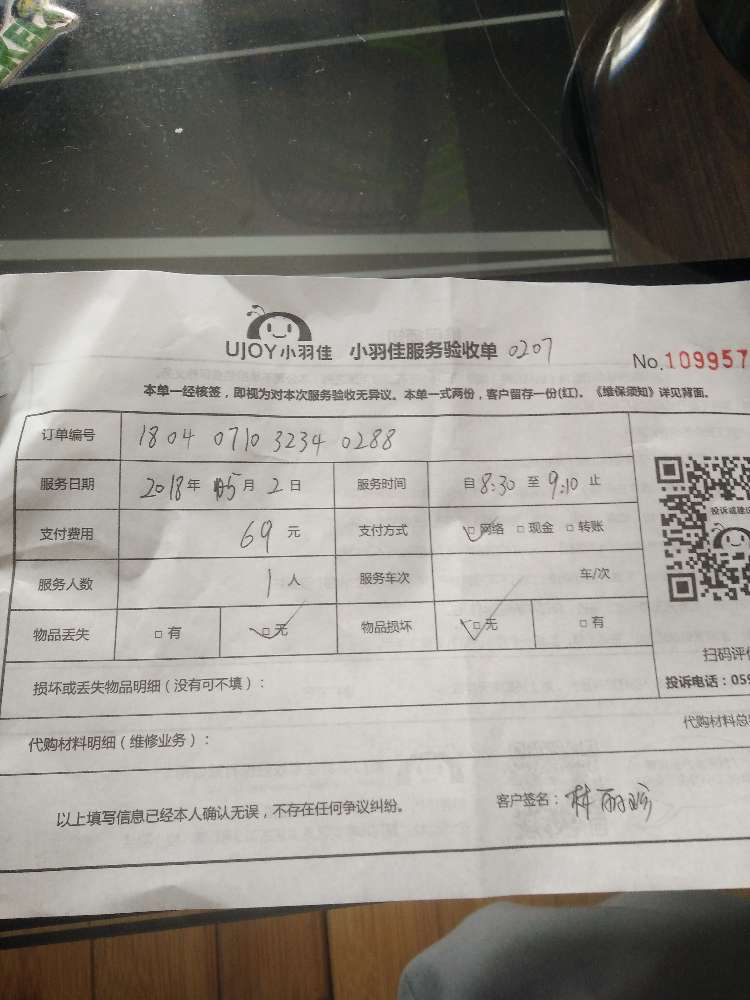 UJOY小羽佳 小羽佳服务验收单 0207
No.109957
本单一经核签，即视为对本次服务验收无异议。本单一式两份，客户留存一份(红)。《维保须知》详见背面。
订单编号 1804 0710 3234 0288
服务日期 2018年 5月 2日 服务时间 自8:30至9:10止
支付费用 69元 支付方式 □网络 □现金 □转账
投诉或建议
服务人数 1人 服务车次 车/次
物品丢失 □有 □无 物品损坏 □无 □有
扫码评
损坏或丢失物品明细（没有可不填）：
投诉电话：059
代购材料明细（维修业务）：
代购材料总
以上填写信息已经本人确认无误，不存在任何争议纠纷。
客户签名：林丽珍